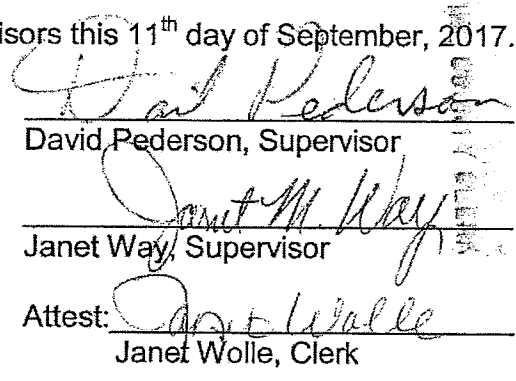 isors this 11th day of September, 2017.
David Pederson
David Pederson, Supervisor
Janet M. Way
Janet Way, Supervisor
Attest: Janet Wolle
Janet Wolle, Clerk